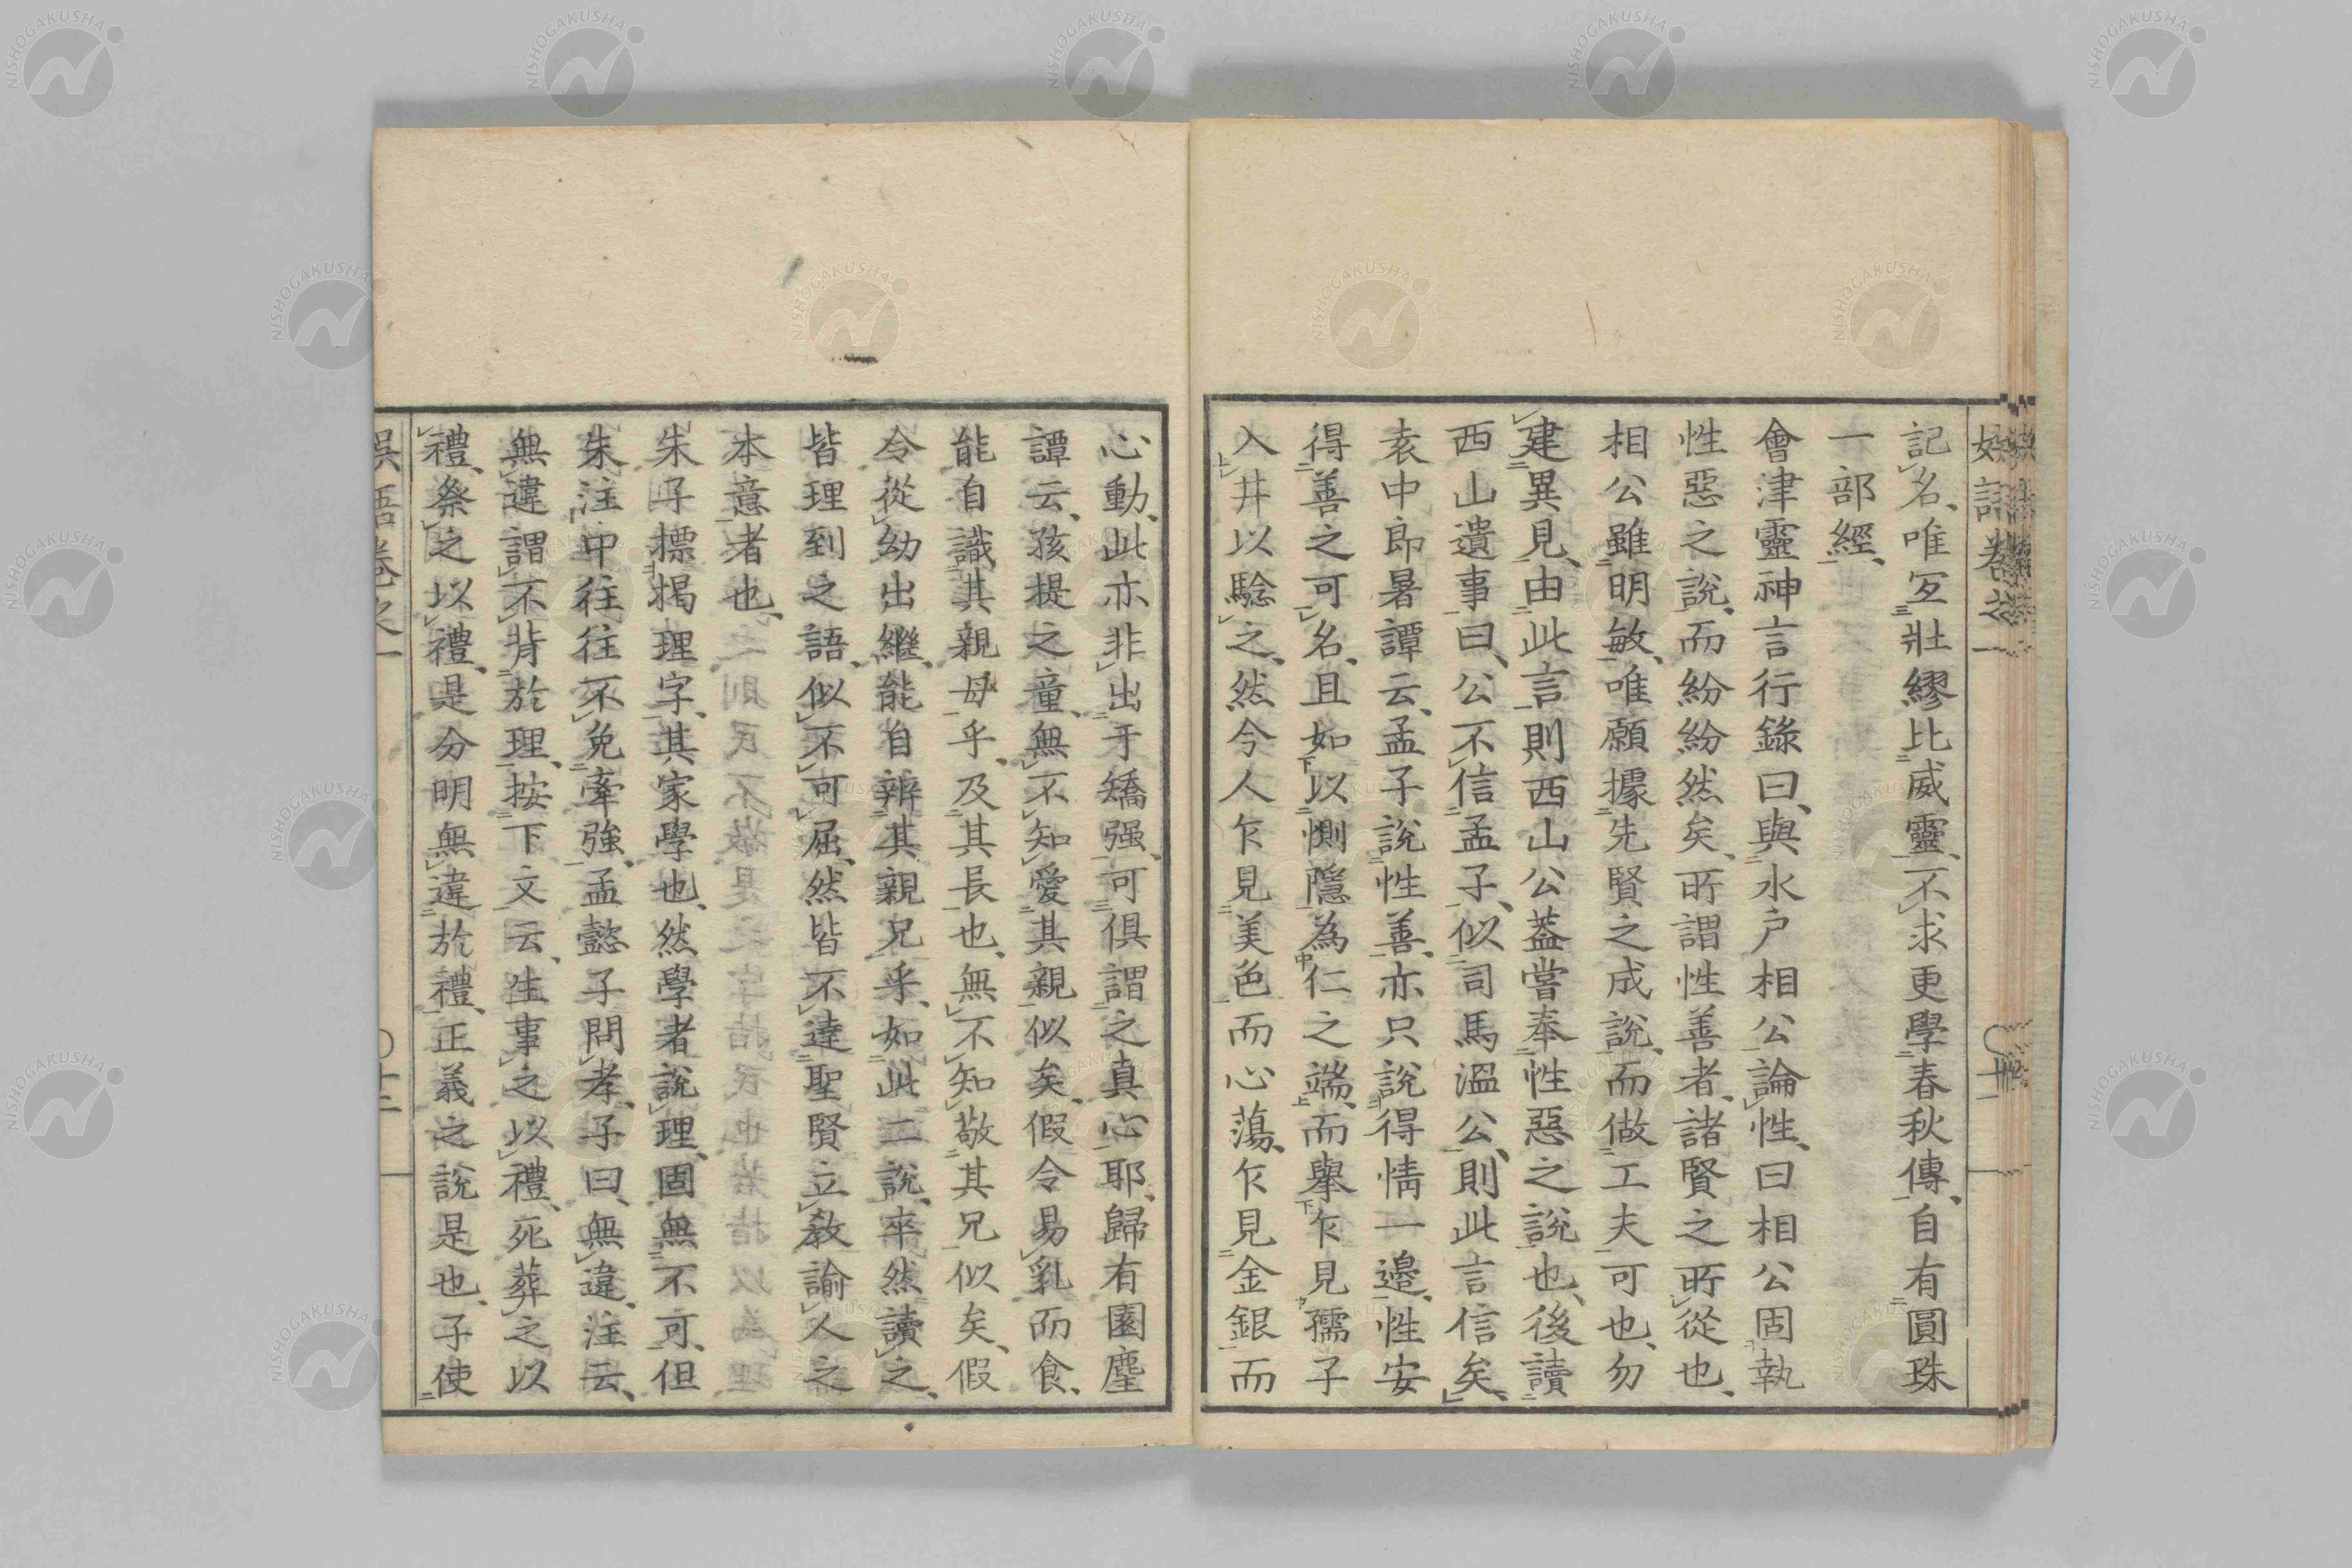 記名、唯冝壯繆比威靈、不求更學春秋傳、自有圓珠
一部經、
會津靈神言行錄曰、與水戶相公論性、曰相公固執
性惡之說、而紛紛然矣、所謂性善者、諸賢之所從也、
相公雖明敏、唯願據先賢之成說、而做工夫可也、勿
建異見、由此言則西山公蓋嘗奉性惡之說也、後讀
西山遺事曰、公不信孟子、似司馬溫公、則此言信矣、
袁中郎暑譚云、孟子說性善、亦只說得情一邊、性安
得善之可名、且如以惻隱為仁之端、而舉乍見孺子
入井以驗之、然今人乍見美色而心蕩、乍見金銀而
心動、此亦非出于矯强、可俱謂之真心耶、歸有園麈
譚云、孩提之童、無不知愛其親似矣、假令易乳而食、
能自識其親母乎、及其長也、無不知敬其兄似矣、假
令從幼出繼、能自辨其親兄乎、如此二說、卒然讀之、
皆理到之語、似不可屈、然皆不達聖賢立教諭人之
本意者也、
朱子標揭理字、其家學也、然學者說理、固無不可、但
朱注中往往不免牽強、孟懿子問孝、子曰、無違、注云、
無違謂不背於理、按下文云、生事之以禮、死葬之以
禮、祭之以禮、是分明無違於禮、正義之說是也、子使
娯語卷之一
〇十二
NISHOGAKUSHA